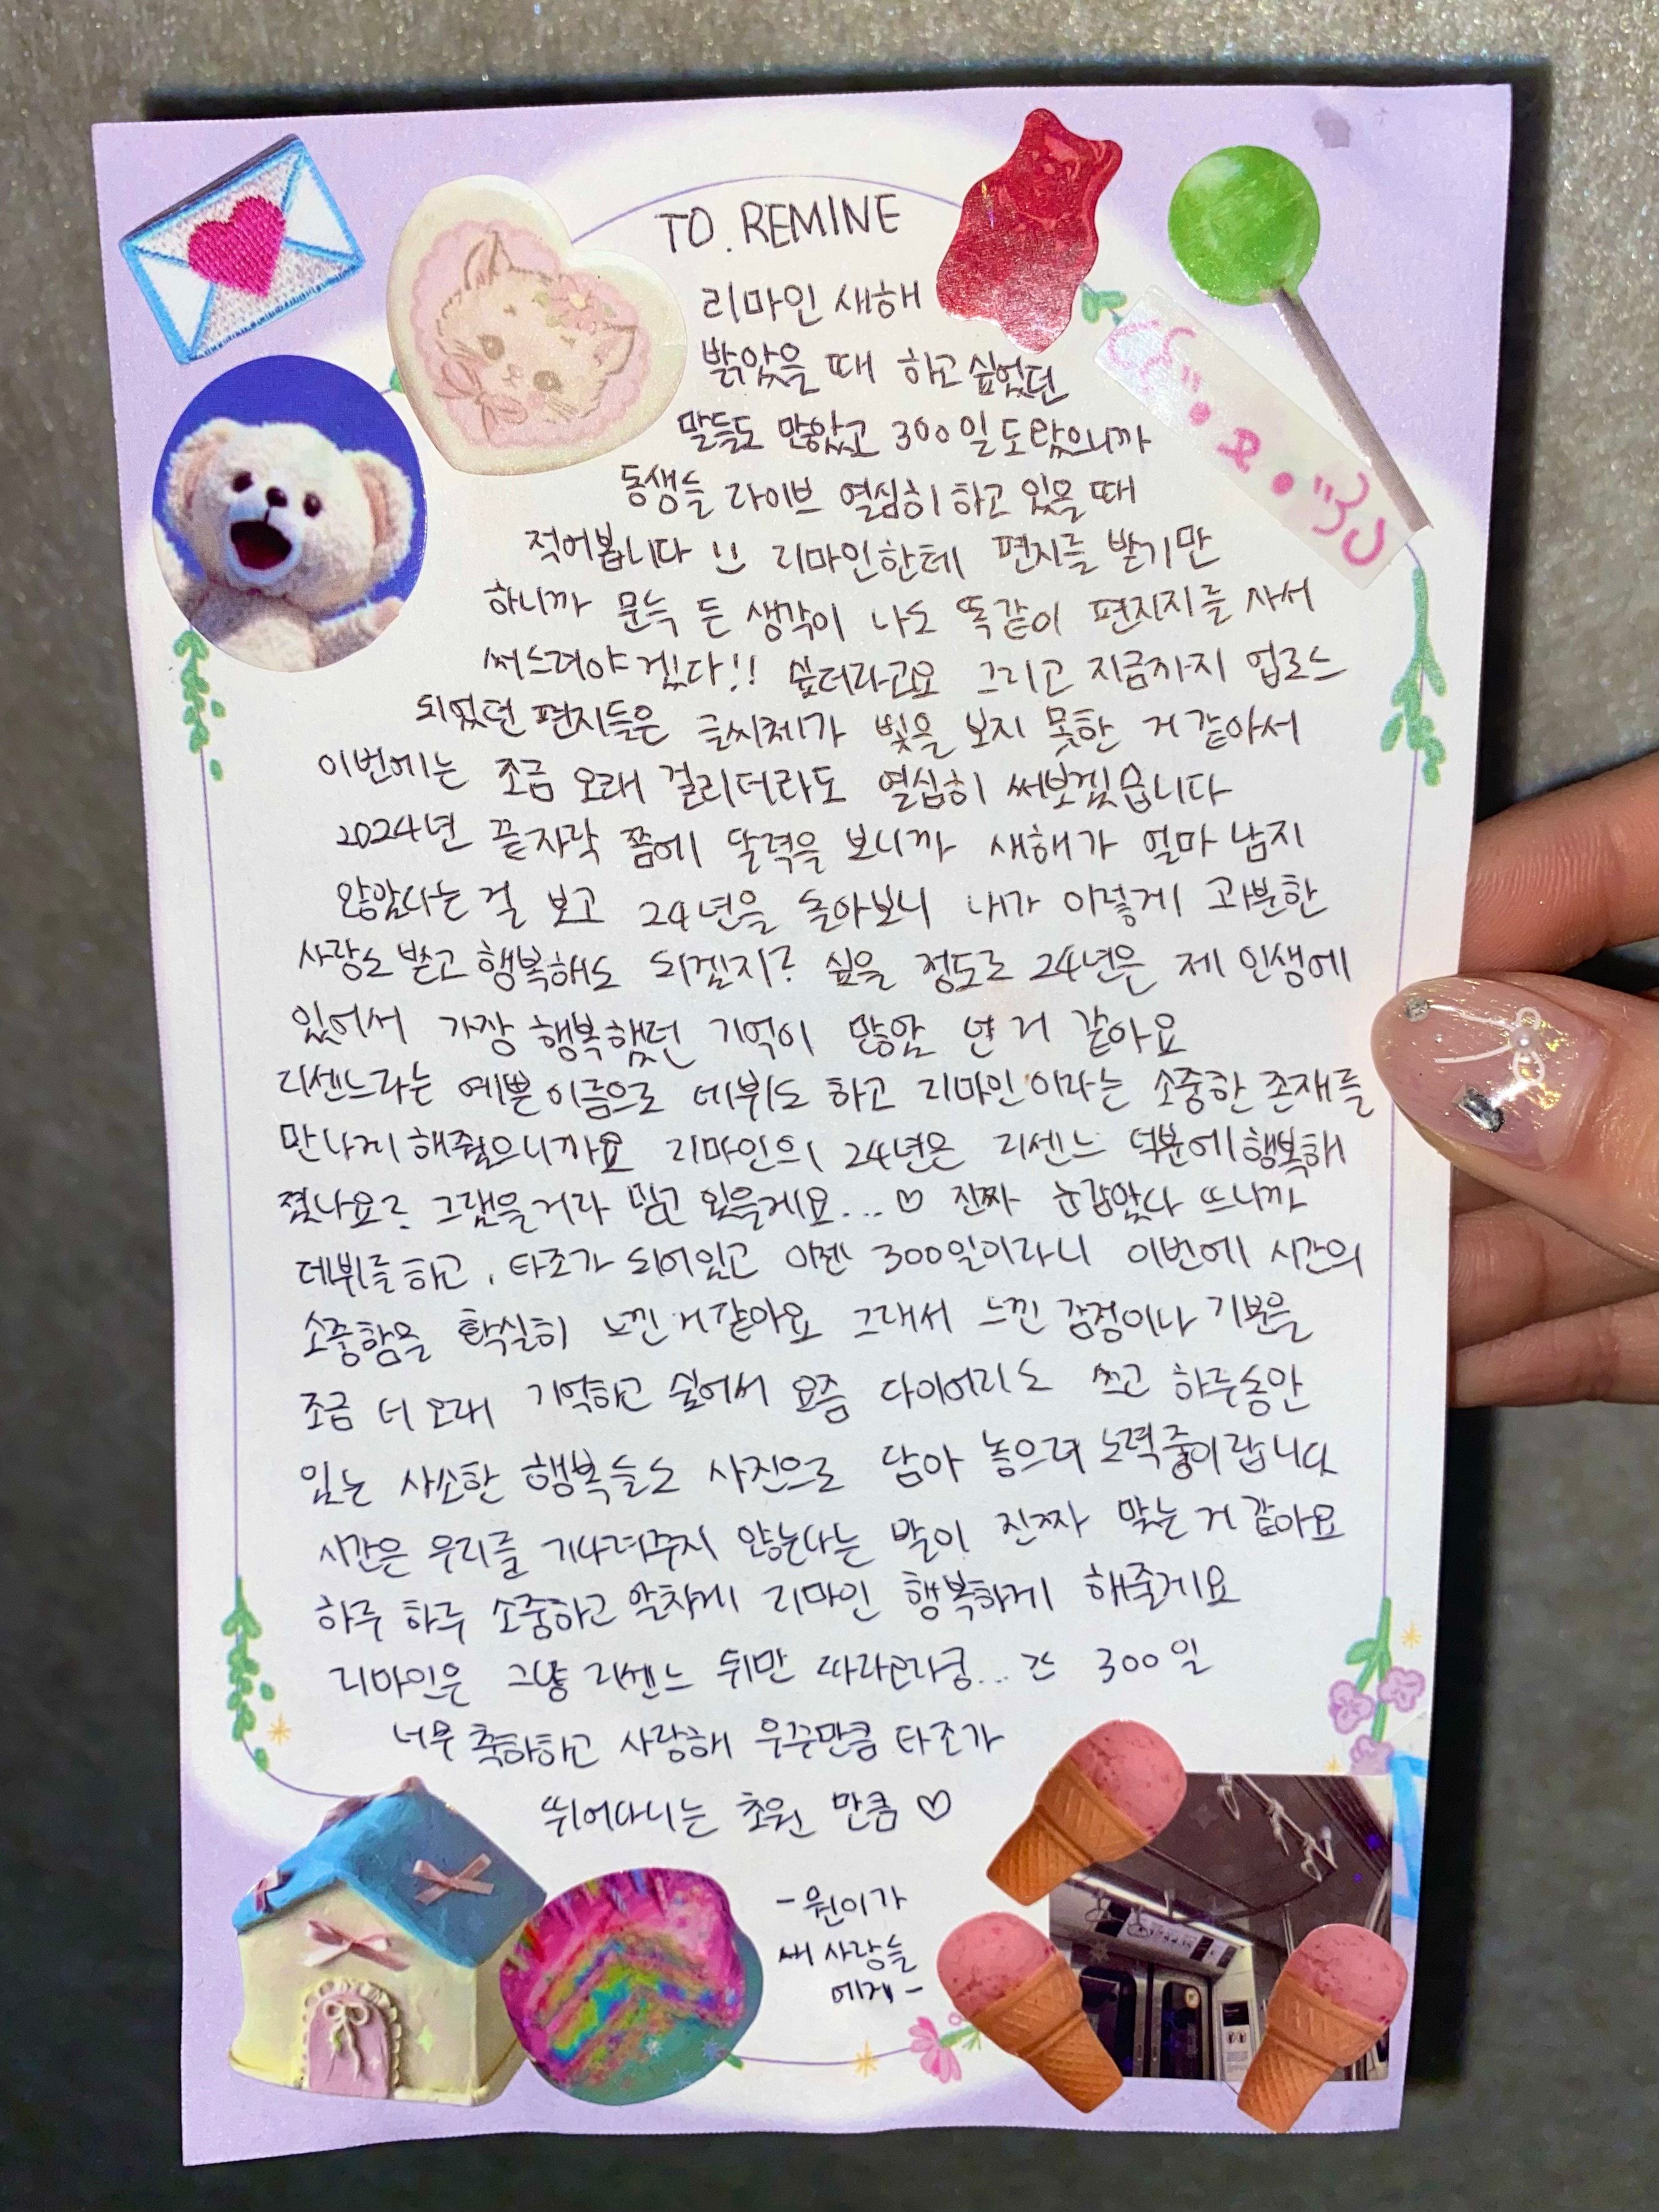 TO. REMINE
리마인 새해
밝았을 때 하고싶었던
말들도 많았고 300일도 왔으니까
동생들 라이브 열심히 하고 있을 때
적어봅니다 !! 리마인한테 편지를 받기만
하니까 문득 든 생각이 나도 똑같이 편지지를 사서
써드려야겠다!! 싶더라고요 그리고 지금까지 업로드
되었던 편지들은 글씨체가 빛을 보지 못한 거 같아서
이번에는 조금 오래 걸리더라도 열심히 써보겠습니다
2024년 끝자락 쯤에 달력을 보니까 새해가 얼마 남지
않았다는 걸 보고 24년을 돌아보니 내가 이렇게 과분한
사랑도 받고 행복해도 되겠지? 싶을 정도로 24년은 제 인생에
있어서 가장 행복했던 기억이 많았던 거 같아요
리센느라는 예쁜 이름으로 데뷔도 하고 리마인이라는 소중한 존재를
만나게 해줬으니까요 리마인의 24년은 리센느 덕분에 행복해
졌나요? 그랬을거라 믿고 있을게요...♡ 진짜 눈감았다 뜨니까
데뷔를 하고, 타조가 되어있고 이젠 300일이라니 이번에 시간의
소중함을 확실히 느낀 거 같아요 그래서 느낀 감정이나 기분을
조금 더 오래 기억하고 싶어서 요즘 다이어리도 쓰고 하루동안
있는 사소한 행복들도 사진으로 담아 놓으려 노력중이랍니다
시간은 우리를 기다려주지 않는다는 말이 진짜 맞는 거 같아요
하루 하루 소중하고 알차게 리마인 행복하게 해줄게요
리마인은 그냥 리센느 뒤만 따라와쿵... 300일
너무 축하하고 사랑해 우주만큼 타조가
뛰어다니는 초원 만큼 ♡
- 원이가
내 사랑들
에게 -